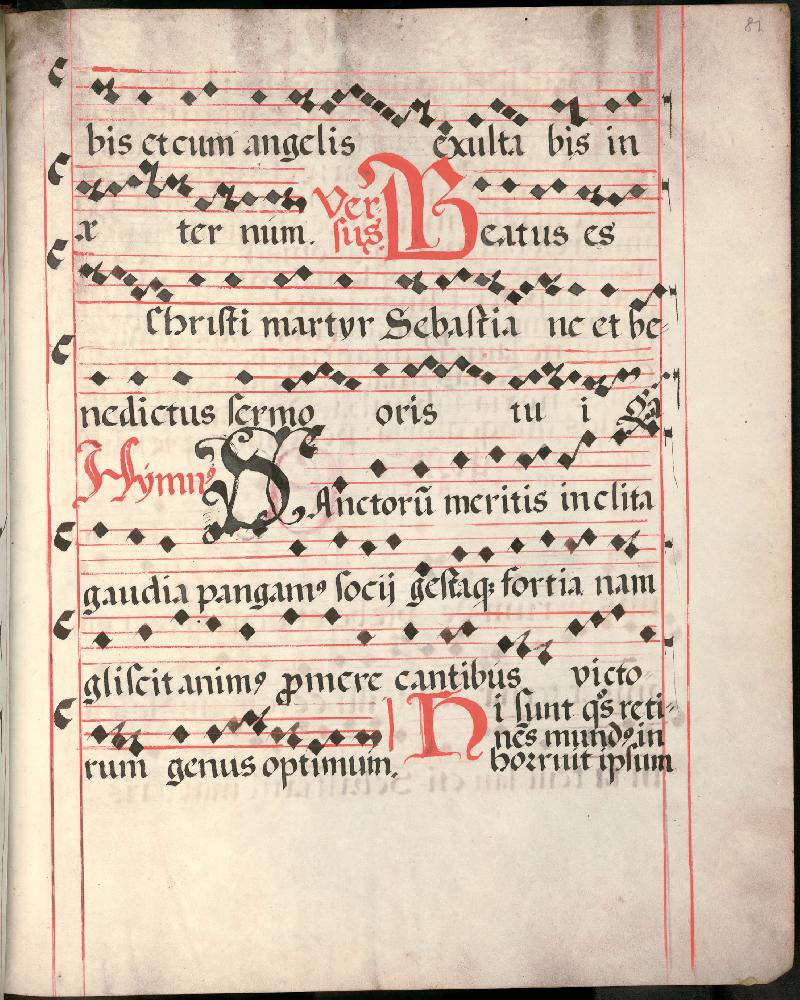 81
bis et cum angelis exulta bis in
æ ter num. Versus Beatus es
Christi martyr Sebastia ne et be-
nedictus sermo oris tu i
Hymnꝰ SAnctorũ meritis inclita
gaudia pangamꝰ socij gestaqꝫ fortia nam
gliscit animꝰ ꝓmere cantibus victo
rum genus optimum. Hi sunt qͦs reti-
nẽs mundꝰ in
horruit ipsum